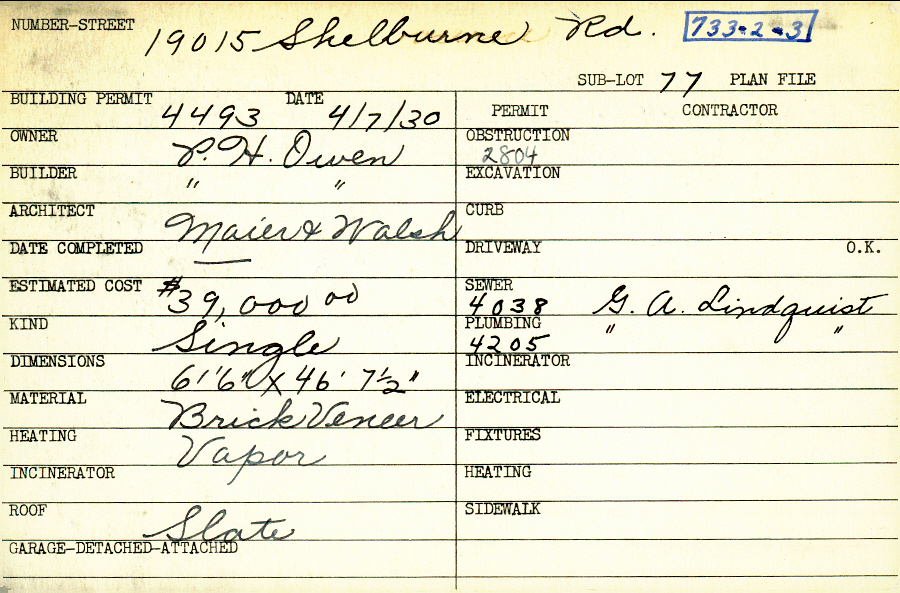 NUMBER-STREET 19015 Shelburne Rd. 733-2-3
SUB-LOT 77 PLAN FILE
BUILDING PERMIT 4493 DATE 4/7/30
PERMIT CONTRACTOR
OWNER P. H. Owen
OBSTRUCTION 2804
BUILDER " "
EXCAVATION
ARCHITECT Maier & Walsh
CURB
DATE COMPLETED —
DRIVEWAY O.K.
ESTIMATED COST $39,000 00
SEWER 4038 G. A. Lindquist
KIND Single
PLUMBING 4205 " "
DIMENSIONS 61'6" X 46' 7½"
INCINERATOR
MATERIAL Brick Veneer
ELECTRICAL
HEATING Vapor
FIXTURES
INCINERATOR
HEATING
ROOF Slate
SIDEWALK
GARAGE-DETACHED-ATTACHED